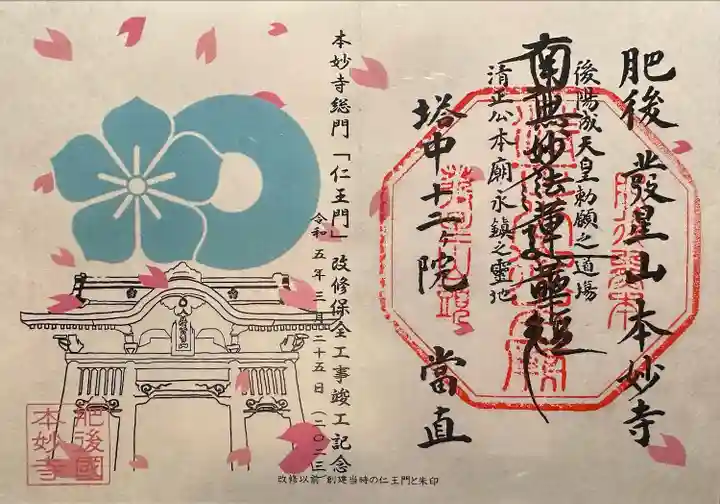 肥後 發星山本妙寺
後陽成天皇勅願之道場
南無妙法蓮華経
清正公本廟永鎮之靈地
塔中十二ヶ院 當直
本妙寺総門「仁王門」改修保全工事竣工記念
令和五年三月二十五日(二〇二三)
肥後國
本妙寺
改修以前 創建当時の仁王門と朱印